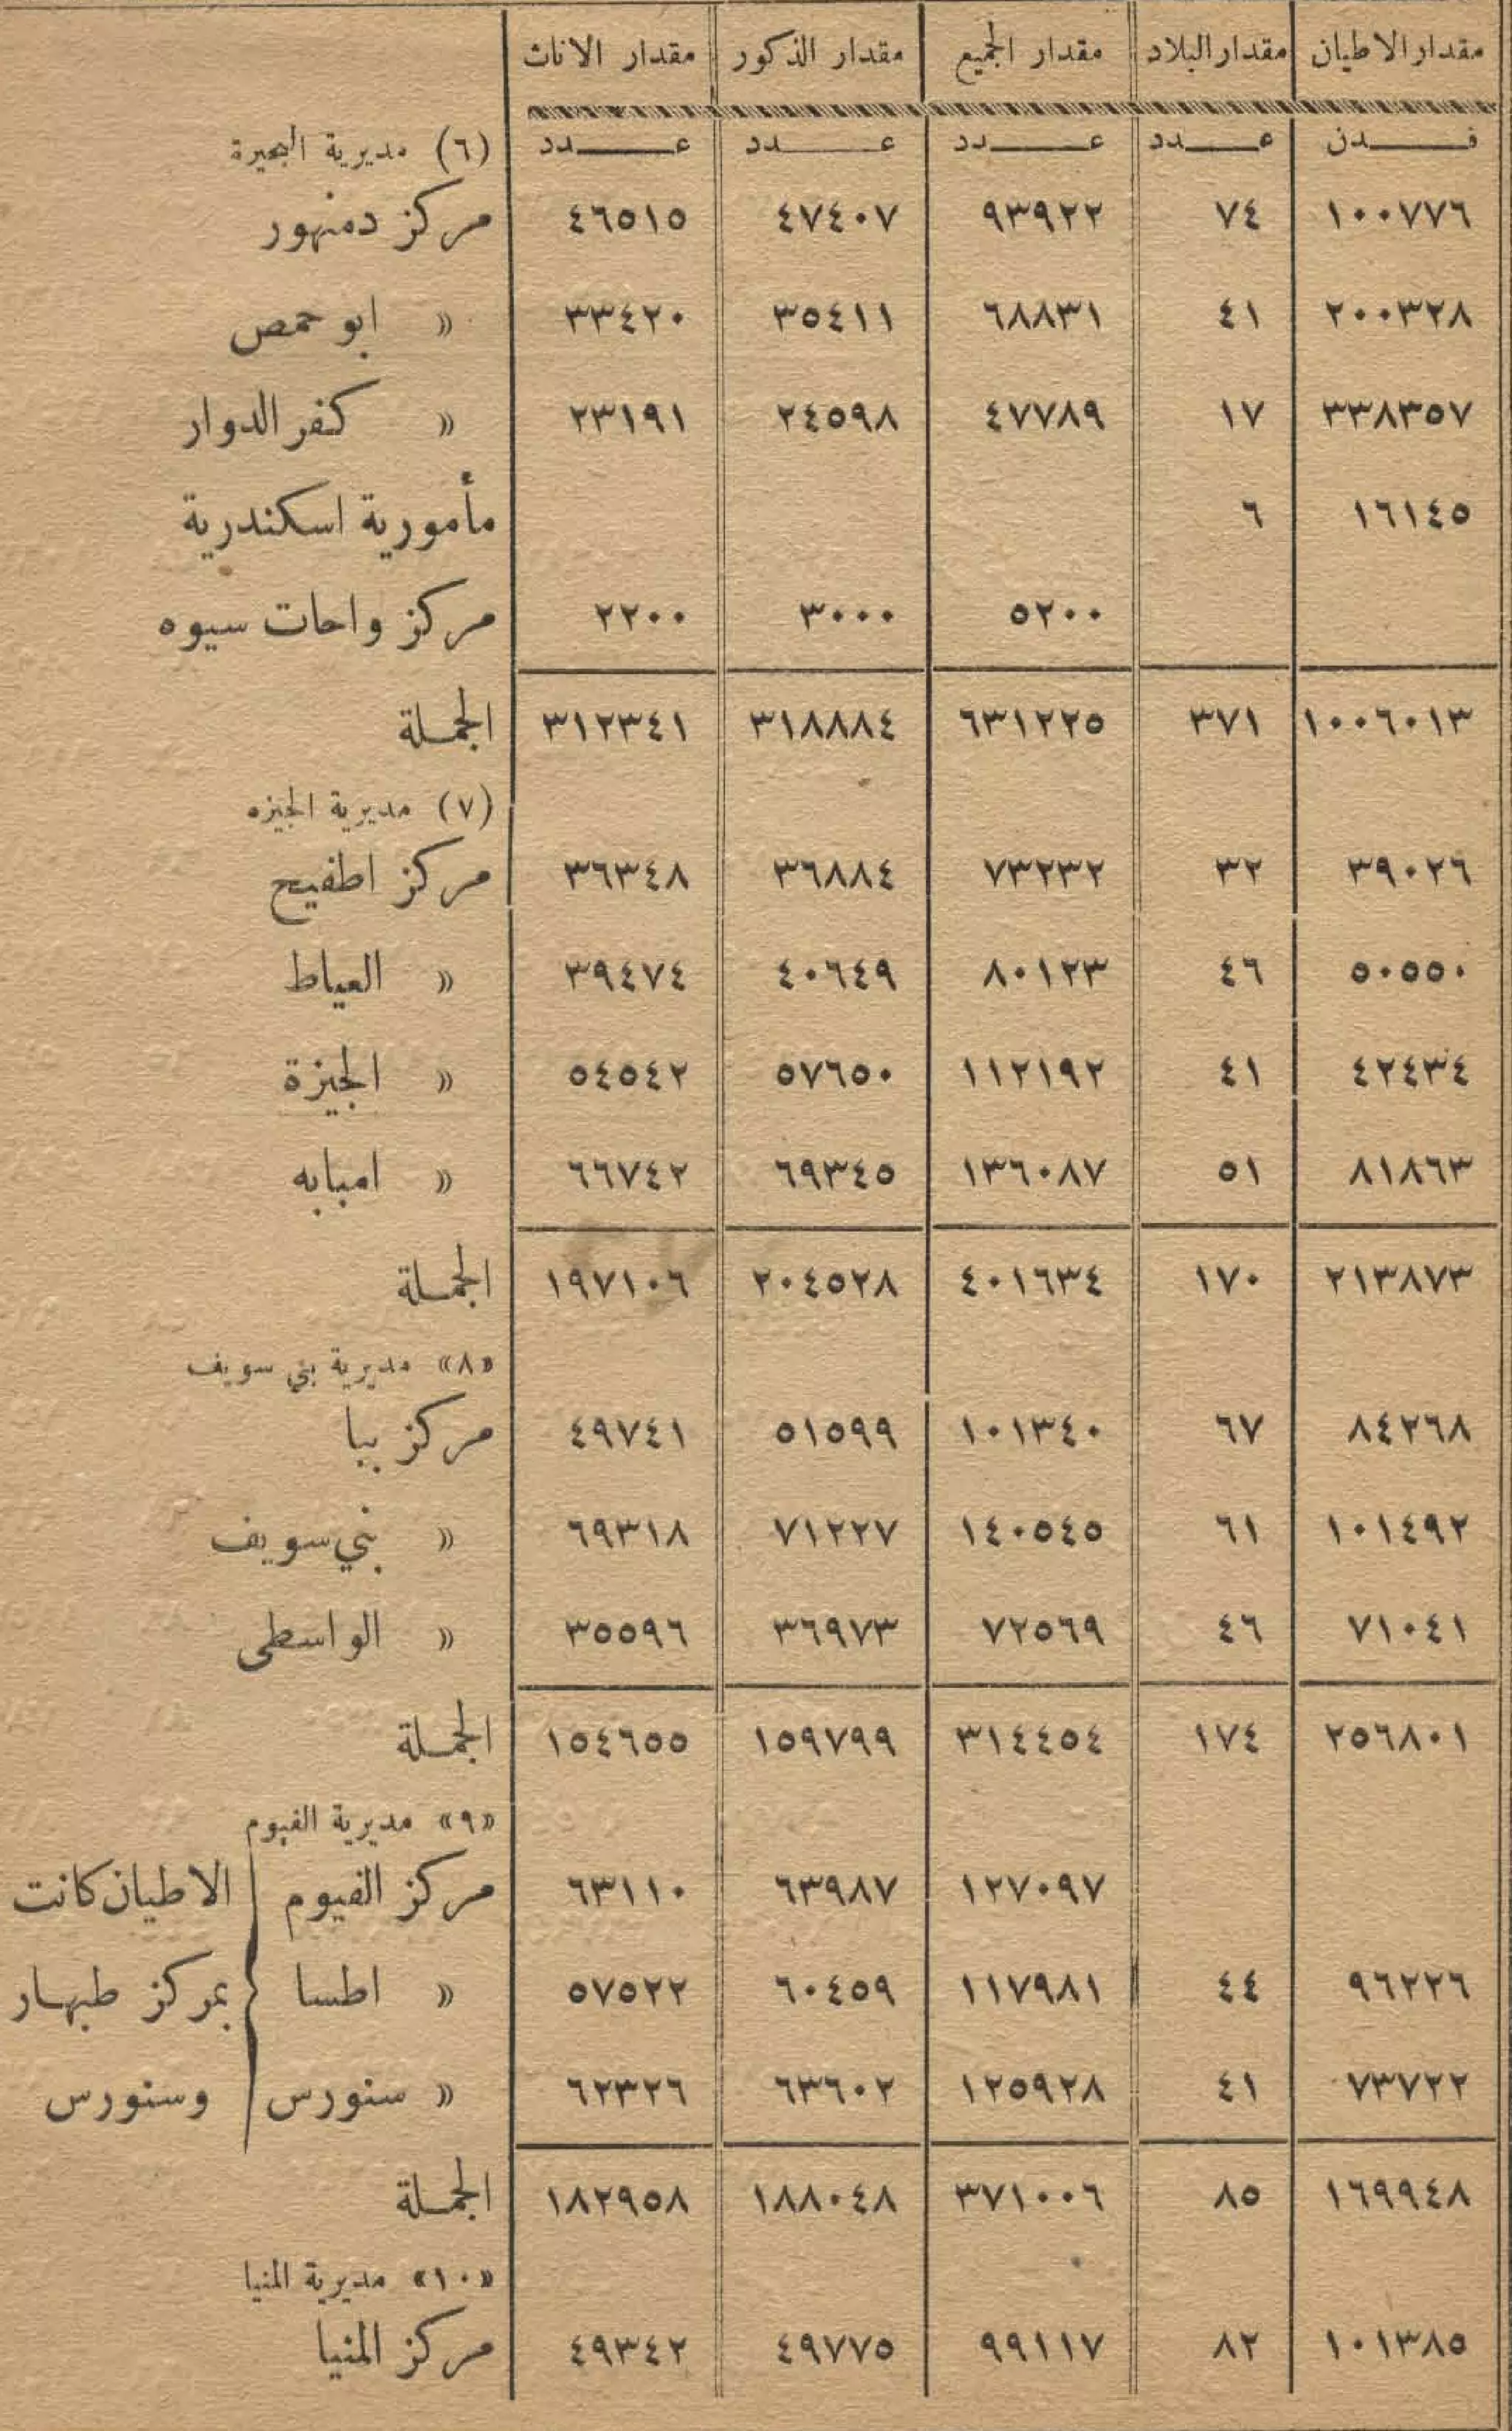 مقدار الاطيان مقدار البلاد مقدار الجميع مقدار الذكور مقدار الاناث
فــدن عــدد عــدد عــدد عــدد (٦) مديرية البحيرة
١٠٠٧٧٦ ٧٤ ٩٣٩٢٢ ٤٧٤٠٧ ٤٦٥١٥ مركز دمنهور
٢٠٠٣٢٨ ٤١ ٦٨٨٣١ ٣٥٤١١ ٣٣٤٢٠ » ابو حمص
٣٣٨٣٥٧ ١٧ ٤٧٧٨٩ ٢٤٥٩٨ ٢٣١٩١ » كفر الدوار
١٦١٤٥ ٦ مأمورية اسكندرية
٥٢٠٠ ٣٠٠٠ ٢٢٠٠ مركز واحات سيوه
١٠٠٦٠١٣ ٣٧١ ٦٣١٢٢٥ ٣١٨٨٨٤ ٣١٢٣٤١ الجملة
(٧) مديرية الجيزه
٣٩٠٢٦ ٣٢ ٧٣٢٣٢ ٣٦٨٨٤ ٣٦٣٤٨ مركز اطفيح
٥٠٥٥٠ ٤٦ ٨٠١٢٣ ٤٠٦٤٩ ٣٩٤٧٤ » العياط
٤٢٤٣٤ ٤١ ١١٢١٩٢ ٥٧٦٥٠ ٥٤٥٤٢ » الجيزة
٨١٨٦٣ ٥١ ١٣٦٠٨٧ ٦٩٣٤٥ ٦٦٧٤٢ » امبابه
٢١٣٨٧٣ ١٧٠ ٤٠١٦٣٤ ٢٠٤٥٢٨ ١٩٧١٠٦ الجملة
«٨» مديرية بني سويف
٨٤٢٦٨ ٦٧ ١٠١٣٤٠ ٥١٥٩٩ ٤٩٧٤١ مركز ببا
١٠١٤٩٢ ٦١ ١٤٠٥٤٥ ٧١٢٢٧ ٦٩٣١٨ » بني سويف
٧١٠٤١ ٤٦ ٧٢٥٦٩ ٣٦٩٧٣ ٣٥٥٩٦ » الواسطى
٢٥٦٨٠١ ١٧٤ ٣١٤٤٥٤ ١٥٩٧٩٩ ١٥٤٦٥٥ الجملة
«٩» مديرية الفيوم
١٢٧٠٩٧ ٦٣٩٨٧ ٦٣١١٠ مركز الفيوم الاطيان كانت
٩٦٢٢٦ ٤٤ ١١٧٩٨١ ٦٠٤٥٩ ٥٧٥٢٢ » اطسا بمركز طبهار
٧٣٧٢٢ ٤١ ١٢٥٩٢٨ ٦٣٦٠٢ ٦٢٣٢٦ » سنورس وسنورس
١٦٩٩٤٨ ٨٥ ٣٧١٠٠٦ ١٨٨٠٤٨ ١٨٢٩٥٨ الجملة
«١٠» مديرية المنيا
١٠١٣٨٥ ٨٢ ٩٩١١٧ ٤٩٧٧٥ ٤٩٣٤٢ مركز المنيا